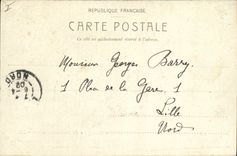 RÉPUBLIQUE FRANÇAISE
CARTE POSTALE
Ce côté est exclusivement réservé à l'adresse.
Monsieur Georges Barry
1 Place de la Gare, 1
Lille
Nord
NORD